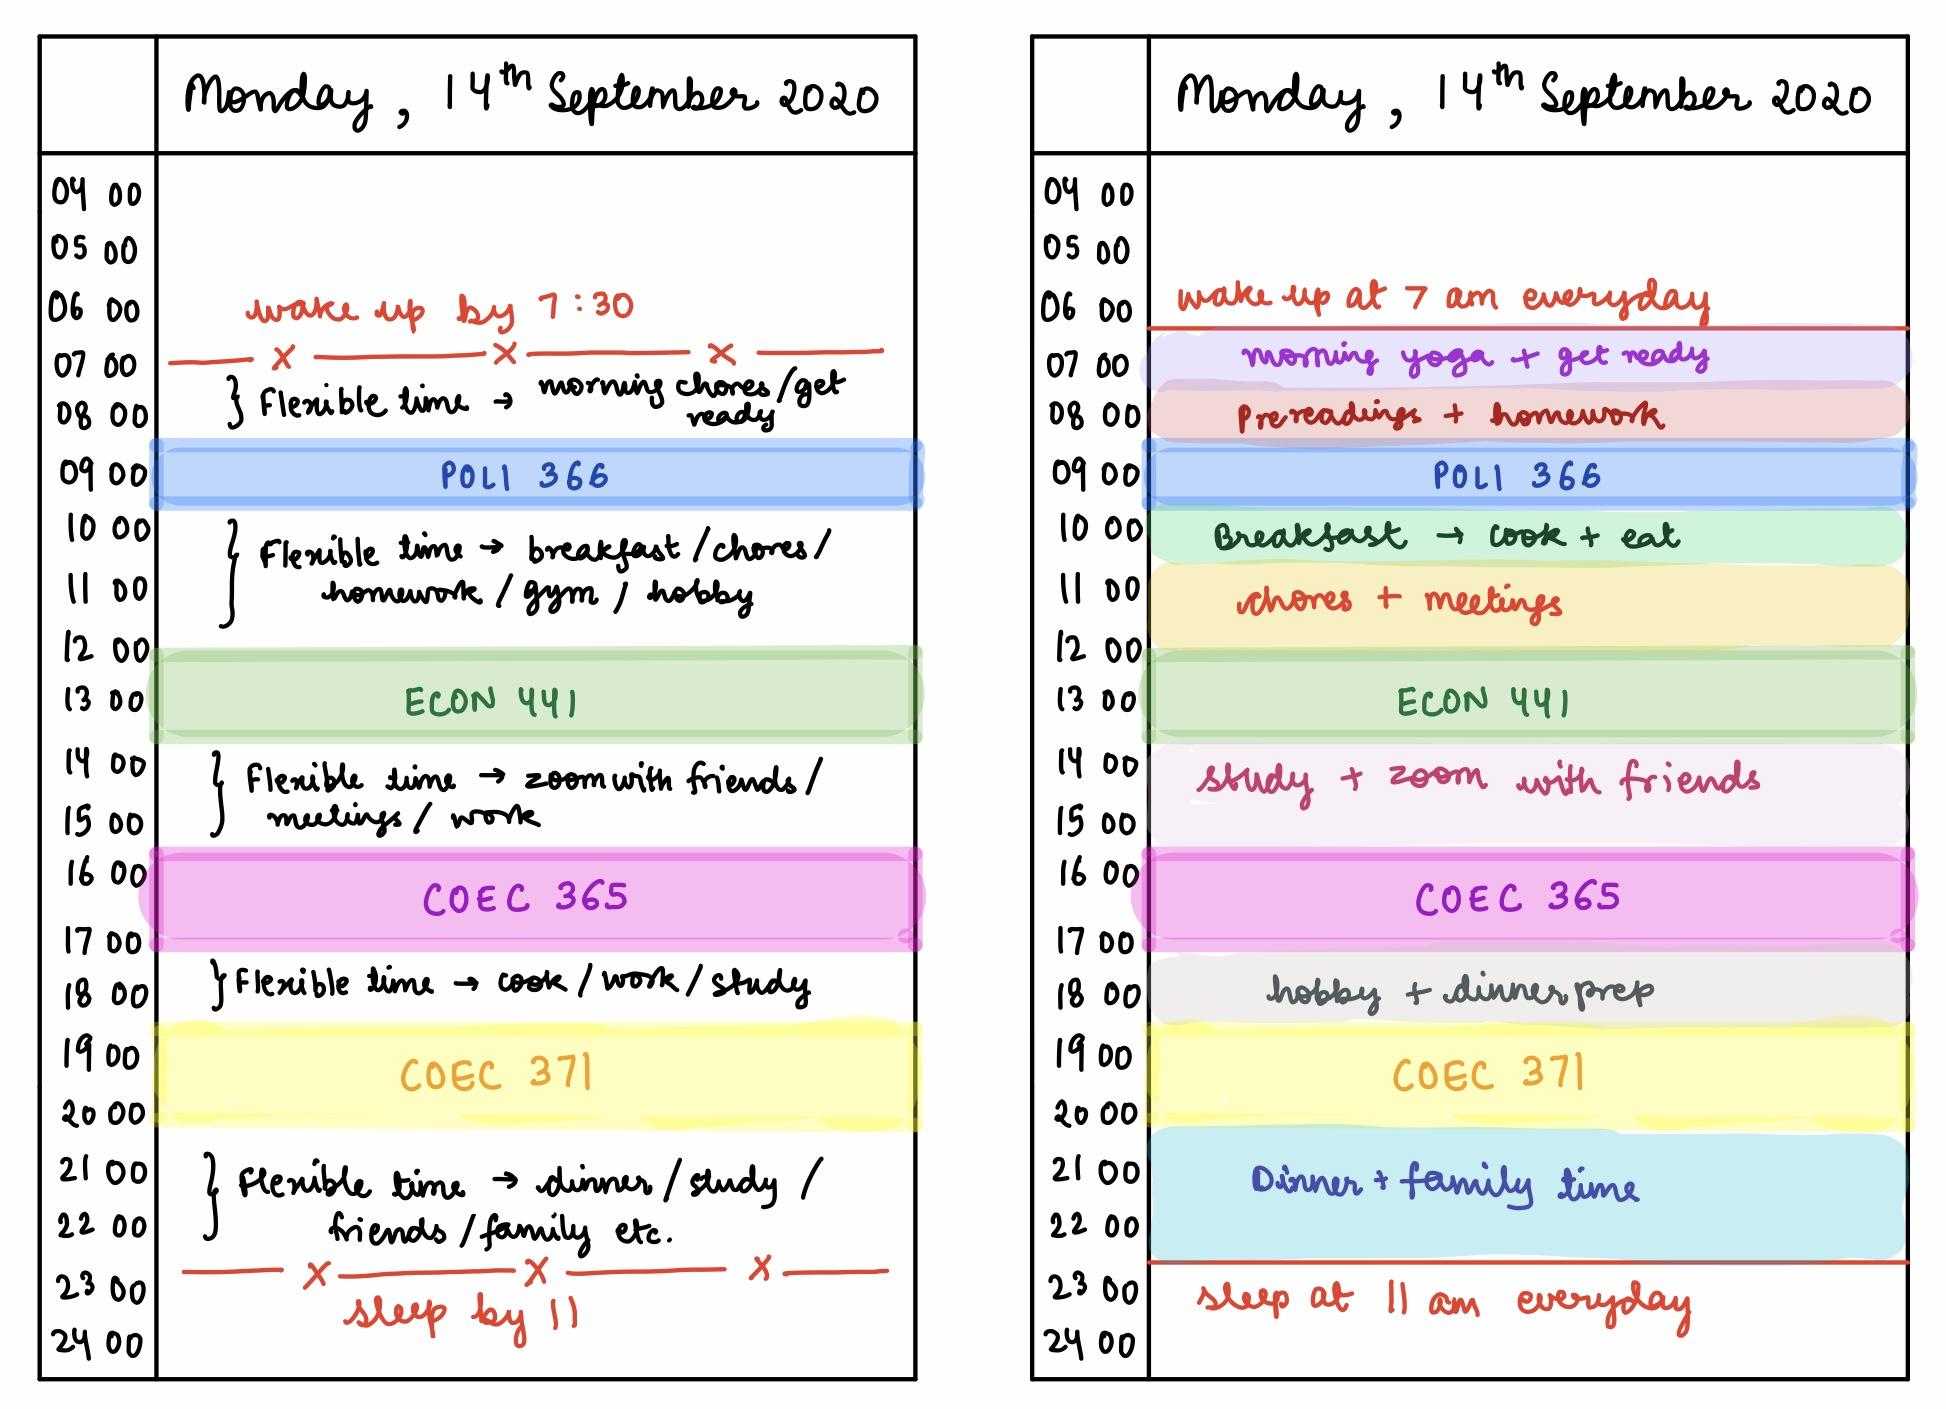 Monday, 14th September 2020
04 00
05 00
06 00
wake up by 7:30
07 00
08 00
} Flexible time → morning chores/get
ready
09 00
POLI 366
10 00
} Flexible time → breakfast/chores/
11 00
homework/gym/hobby
12 00
13 00
ECON 441
14 00
} Flexible time → zoom with friends/
15 00
meetings/work
16 00
COEC 365
17 00
18 00
} Flexible time → cook/work/study
19 00
COEC 371
20 00
21 00
} Flexible time → dinner/study/
22 00
friends/family etc.
23 00
sleep by 11
24 00
Monday, 14th September 2020
04 00
05 00
06 00
wake up at 7 am everyday
07 00
morning yoga + get ready
08 00
Prereadings + homework
09 00
POLI 366
10 00
Breakfast → cook + eat
11 00
chores + meetings
12 00
13 00
ECON 441
14 00
study + zoom with friends
15 00
16 00
COEC 365
17 00
18 00
hobby + dinner prep
19 00
COEC 371
20 00
21 00
Dinner + family time
22 00
23 00
sleep at 11 am everyday
24 00